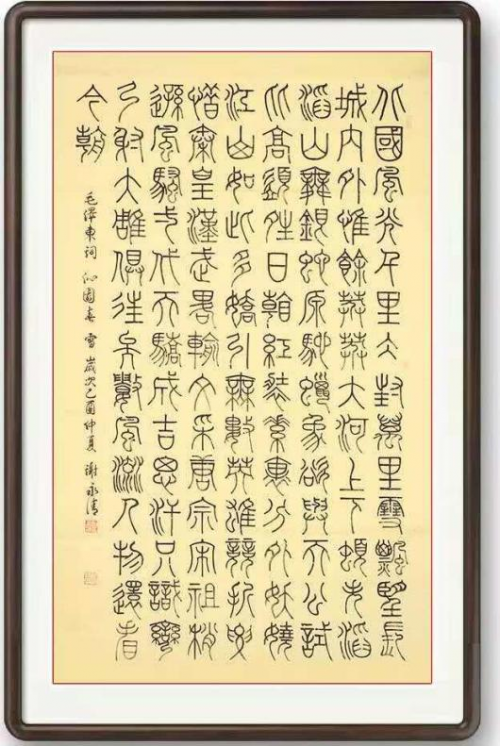 北國風光千里冰封萬里雪飄望長
城内外惟餘莽莽大河上下頓失滔
滔山舞銀蛇原馳蠟象欲與天公試
比高須晴日看紅裝素裹分外妖嬈
江山如此多嬌引無數英雄競折腰
惜秦皇漢武略輸文采唐宗宋祖稍
遜風騷一代天驕成吉思汗只識彎
弓射大雕俱往矣數風流人物還看
今朝
毛澤東詞 沁園春 雪 歲次乙酉仲夏 謝永清